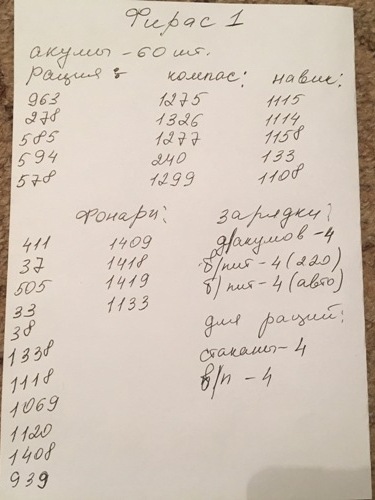 Фирас 1
акумы - 60 шт.
рация: компас: навик:
963 1275 1115
278 1326 1114
585 1277 1158
594 240 133
578 1299 1108
Фонари: зарядки:
411 1409 д/акумов - 4
37 1418 б/пит - 4 (220)
505 1419 б/пит - 4 (авто)
33 1133
38 для раций:
1338 стаканы - 4
1118 б/п - 4
1069
1120
1408
939